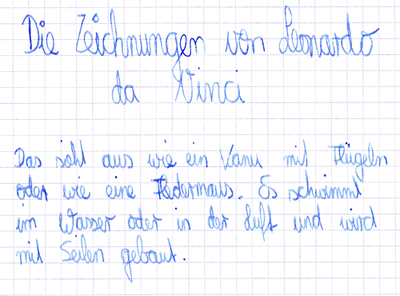 Die Zeichnungen von Leonardo
da Vinci
Das seht aus wie ein Kanu mit Flügeln
oder wie eine Fledermaus. Es schwimmt
im Wasser oder in der Luft und wird
mit Seilen gebaut.